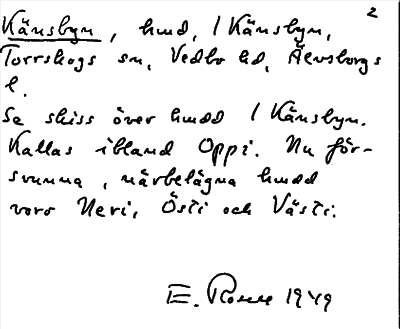 2
Känsbyn, hmd, / Känsbyn,
Torrskogs sn, Vedbo hd, Älvsborgs
l.
Se skiss över hmdd / Känsbyn.
Kallas ibland Oppi. Nu för-
svunna, närbelägna hmdd
voro Neri, Östi och Västi.
E. 1949